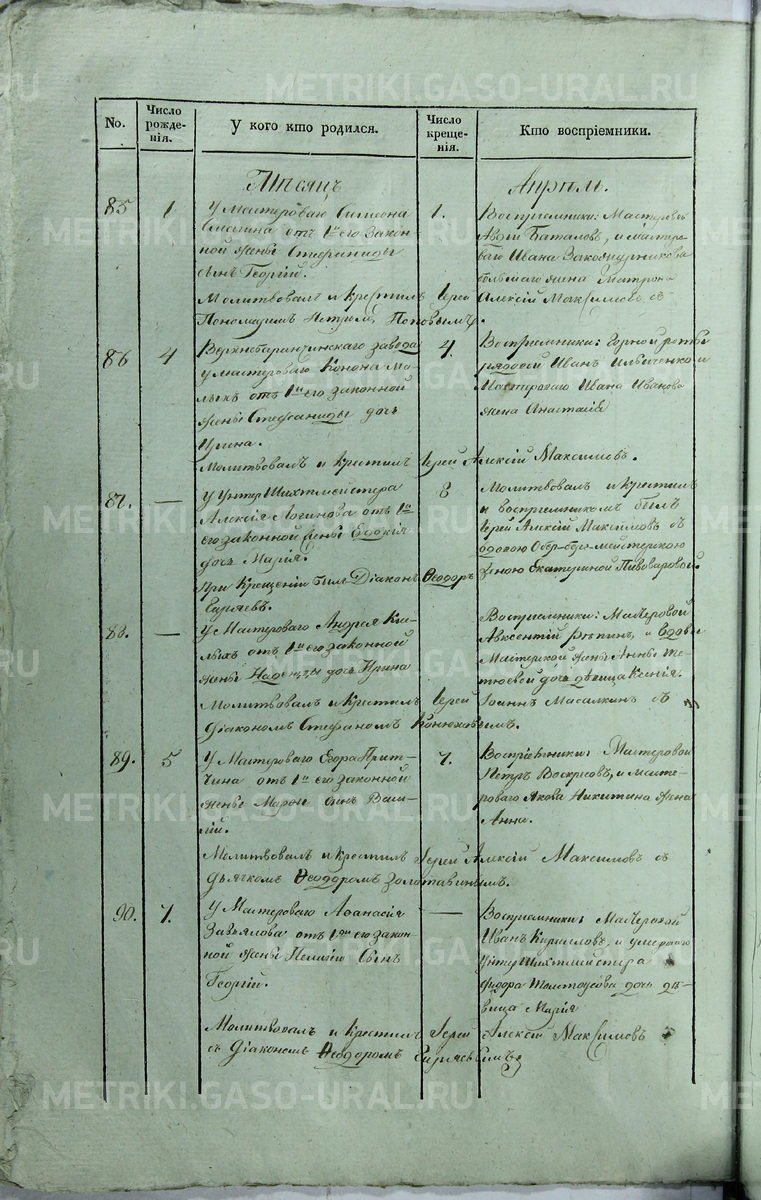 METRIKI.GASO-URAL.RU
No.
Число рожденія.
У кого кто родился.
Число крещенія.
Кто воспріемники.
Мѣсяцъ
Апрѣль.
85
1
У Мастероваго Симеона
отъ 1го его закон-
ной жены Стефаниды
сынъ Георгій.
1.
Воспріемники: Мастеровой
Баталовъ, и мастеро-
ваго Ивана
жена Матрона
Молитвовалъ и крестилъ Іерей Алексій Максимовъ съ
Пономаремъ Петромъ Поповымъ.
86
4
Верхнебаранчинскаго завода
у мастероваго Конона Ма-
лыхъ отъ 1й его законной
жены Стефаниды дочь
Ирина.
4.
Воспріемники: Горной роты
рядовой Иванъ Ильиченко и
Мастероваго Ивана Иванова
жена Анастасія
Молитвовалъ и Крестилъ Іерей Алексій Максимовъ.
87.
—
У Унтер Шихтмейстера
Алексія Логинова отъ 1й
его законной жены Евдокіи
дочь Марія.
8
Молитвовалъ и крестилъ
и воспріемникомъ былъ
Іерей Алексій Максимовъ съ
вдовою Обер-берг-мейстерскою
женою Екатериной Пивоваровой.
При Крещеніи былъ Діаконъ Ѳеодоръ
88.
—
У Мастероваго Андрея
отъ 1й его законной
жены Надежды дочь Ирина
Воспріемники: Мастеровой
Авксентій Рѣпинъ, и вдовы
Мастерской жены Анны Те-
тюевой дочь дѣвица Ксенія.
Молитвовалъ и Крестилъ Іерей Іоаннъ Масалкинъ съ
Діакономъ Стефаномъ Конюховымъ.
89.
5
У Мастероваго Егора Прит-
чина отъ 1й его законной
жены Марѳы сынъ Васи-
лій.
7.
Воспріемники: Мастеровой
Петръ Воскресовъ, и масте-
роваго Якова Никитина жена
Анна.
Молитвовалъ и крестилъ Іерей Алексій Максимовъ съ
дьячкомъ Ѳеодоромъ Золотавинымъ.
90.
7.
У Мастероваго Аѳанасія
Завьялова отъ его закон-
ной жены Пелагіи Сынъ
Георгій.
—
Воспріемники: Мастеровой
Иванъ Кириловъ, и умершаго
Унтер Шихтмейстера
Федора Толстоусова дочь дѣ-
вица Марія
Молитвовалъ и Крестилъ Іерей Алексій Максимовъ
съ Діакономъ Ѳеодоромъ